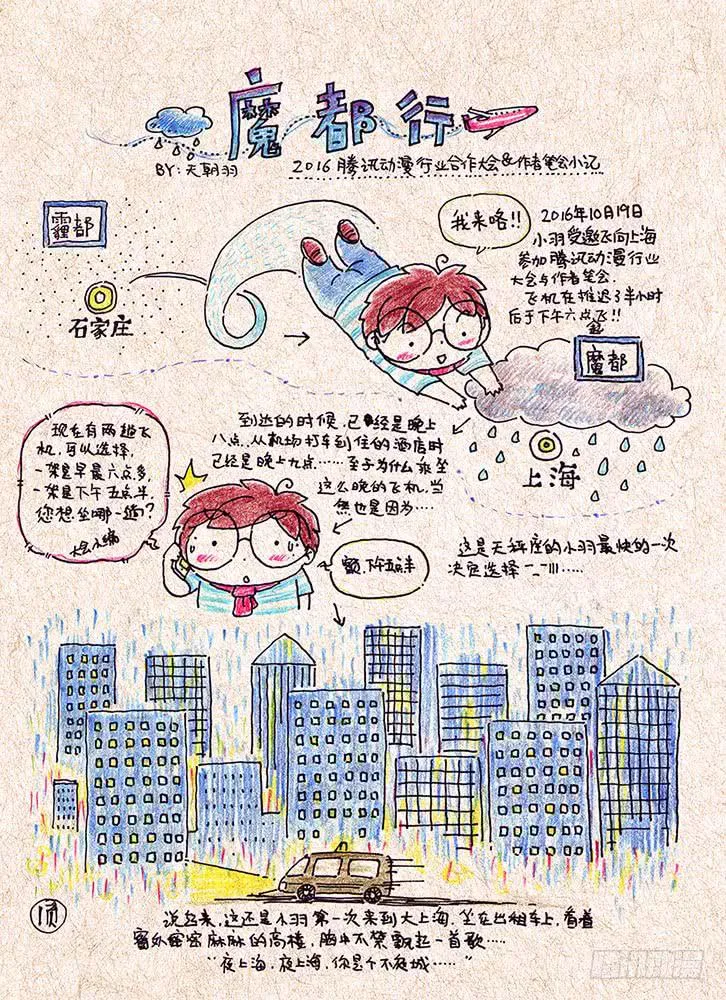 魔都行
BY:天朝羽
2016腾讯动漫行业合作大会&作者笔会小记
霾都
石家庄
我来咯!!
2016年10月19日
小羽受邀飞向上海
参加腾讯动漫行业
大会与作者笔会.
飞机在推迟了半小时
后于下午六点起飞!!
魔都
上海
现在有两趟飞
机,可以选择,
一架是早晨六点多,
一架是下午五点半,
您想坐哪一趟?
大会小编
到达的时候,已经是晚上
八点..从机场打车到住的酒店时
已经是晚上九点……至于为什么乘坐
这么晚的飞机,当
然也是因为….
额,下午五点半
这是天秤座的小羽最快的一次
决定选择
说起来,这还是小羽第一次来到大上海,坐在出租车上,看着
窗外密密麻麻的高楼,胸中不禁飘起一首歌……
“夜上海,夜上海,你是个不夜城……”